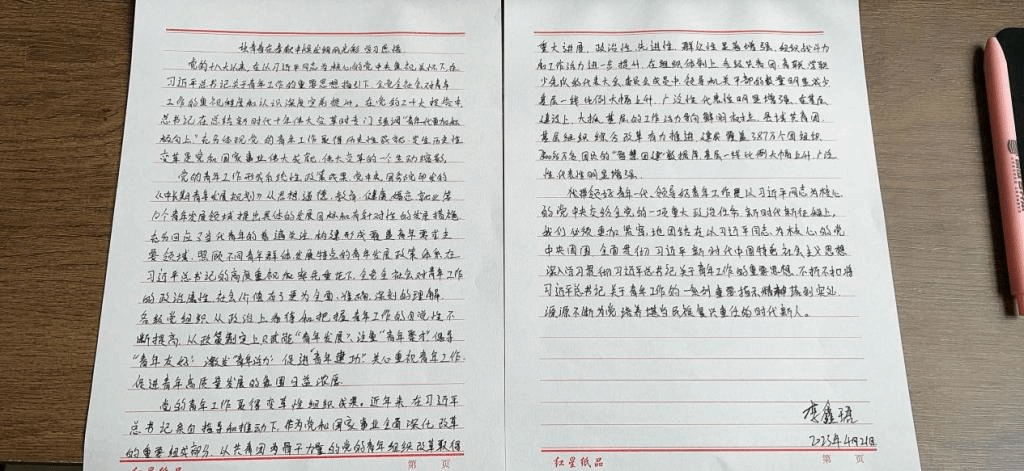 让青春在奉献中焕发绚丽光彩 学习感悟
党的十八大以来,在以习近平同志为核心的党中央集中关怀下,在
习近平总书记关于青年工作的重要思想指引下,全党全社会对青年
工作的重视程度和认识深度空前提升。在党的二十大报告中
总书记在总结新时代十年伟大变革时专门强调"青年
向上"充分体现党的青年工作取得历史性成就、发生历史性
变革是党和国家事业伟大成就、伟大变革的一个生动缩影。
党的青年工作形成系统性政策成果。党中央、国务院印发的
《中长期青年发展规划》从思想道德、教育、健康、婚恋、就业等
10个青年发展领域提出具体的发展目标和有针对性的发展措施,
充分回应了当代青年的普遍关注,构建形成覆盖青年需求主
要领域、照顾不同青年群体发展特点的青年发展政策体系。在
习近平总书记的高度重视和率先垂范下,全党全社会对青年工作
的政治属性、社会价值有了更为全面、准确、深刻的理解
各级党组织从政治上看待和把握青年工作的自觉性不
断提高,从政策制定上贯彻"青年发展",注重"青年需求"倡导
"青年友好",激发"青年活力",促进"青年建功"关心重视青年工作、
促进青年高质量发展的氛围日益浓厚。
党的青年工作取得变革性组织成果。近年来,在习近平
总书记亲自指导和推动下,作为党和国家事业全面深化改革
的重要组成部分,以共青团为骨干力量的党的青年组织改革取得
红星纸品 第 页
重大进展,政治性、先进性、群众性显著增强,组织战斗力
和工作活力进一步提升。在组织体制上,各级共青团、青联、学联
少先队的代表大会、委员会成员中,领导机关干部的数量明显减少
基层一线比例大幅上升,广泛性、代表性明显增强。在基层
建设上,大抓基层的工作活力导向鲜明树立,县域共青团
基层组织综合改革有力推进,建成覆盖387万个团组织、
万名团员的"智慧团建"数据库,基层一线比例大幅上升,广泛
性、代表性明显增强。
代表领好青年一代、领导好青年工作是以习近平同志为核心
的党中央交给全党的一项重大政治任务,新时代新征程上,
我们必须更加紧密地团结在以习近平同志为核心的党
中央周围,全面贯彻习近平新时代中国特色社会主义思想
深入学习贯彻习近平总书记关于青年工作的重要思想,不折不扣将
习近平总书记关于青年工作的一系列重要指示精神落到实处、
源源不断为党培养堪当民族复兴重任的时代新人。
李鑫
2023年4月21日
红星纸品 第 页